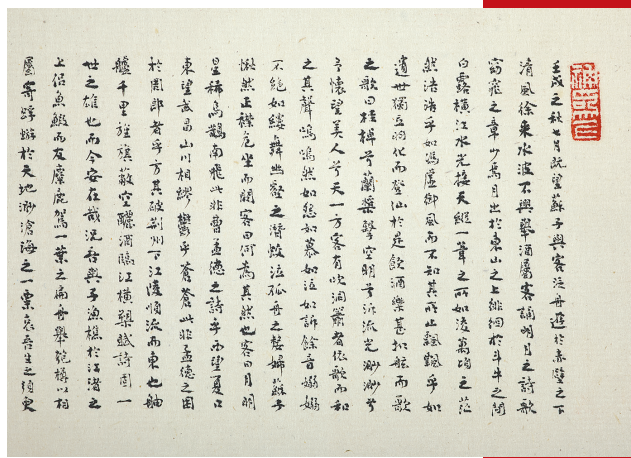 壬戌之秋七月既望蘇子與客泛舟遊於赤壁之下
清風徐來水波不興舉酒屬客誦明月之詩歌
窈窕之章少焉月出於東山之上徘徊於斗牛之間
白露橫江水光接天縱一葦之所如凌萬頃之茫
然浩浩乎如馮虛御風而不知其所止飄飄乎如
遺世獨立羽化而登仙於是飲酒樂甚扣舷而歌
之歌曰桂棹兮蘭槳擊空明兮泝流光渺渺兮
予懷望美人兮天一方客有吹洞簫者倚歌而和
之其聲嗚嗚然如怨如慕如泣如訴餘音嫋嫋
不絕如縷舞幽壑之潛蛟泣孤舟之嫠婦蘇子
愀然正襟危坐而問客曰何為其然也客曰月明
星稀烏鵲南飛此非曹孟德之詩乎西望夏口
東望武昌山川相繆鬱乎蒼蒼此非孟德之困
於周郎者乎方其破荊州下江陵順流而東也舳
艫千里旌旗蔽空釃酒臨江橫槊賦詩固一
世之雄也而今安在哉況吾與子漁樵於江渚之
上侶魚蝦而友麋鹿駕一葉之扁舟舉匏樽以相
屬寄蜉蝣於天地渺滄海之一粟哀吾生之須臾